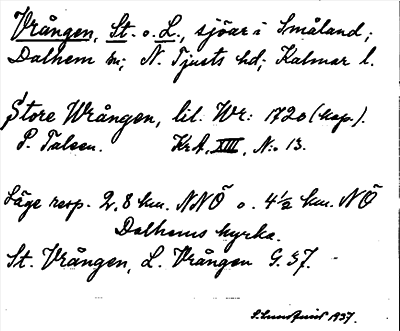 Vrången, St. o. L., sjöar i Småland;
Dalhem sn; N. Tjusts hd; Kalmar l.
Store Wrången, lil. Wr: 1720 (kop.).
P. Talsen. KrA, XIII, N:o 13.
Läge resp. 2,8 km. NNÖ o. 4½ km. NÖ
Dalhems kyrka.
St. Vrången, L. Vrången G.S7.
1937.